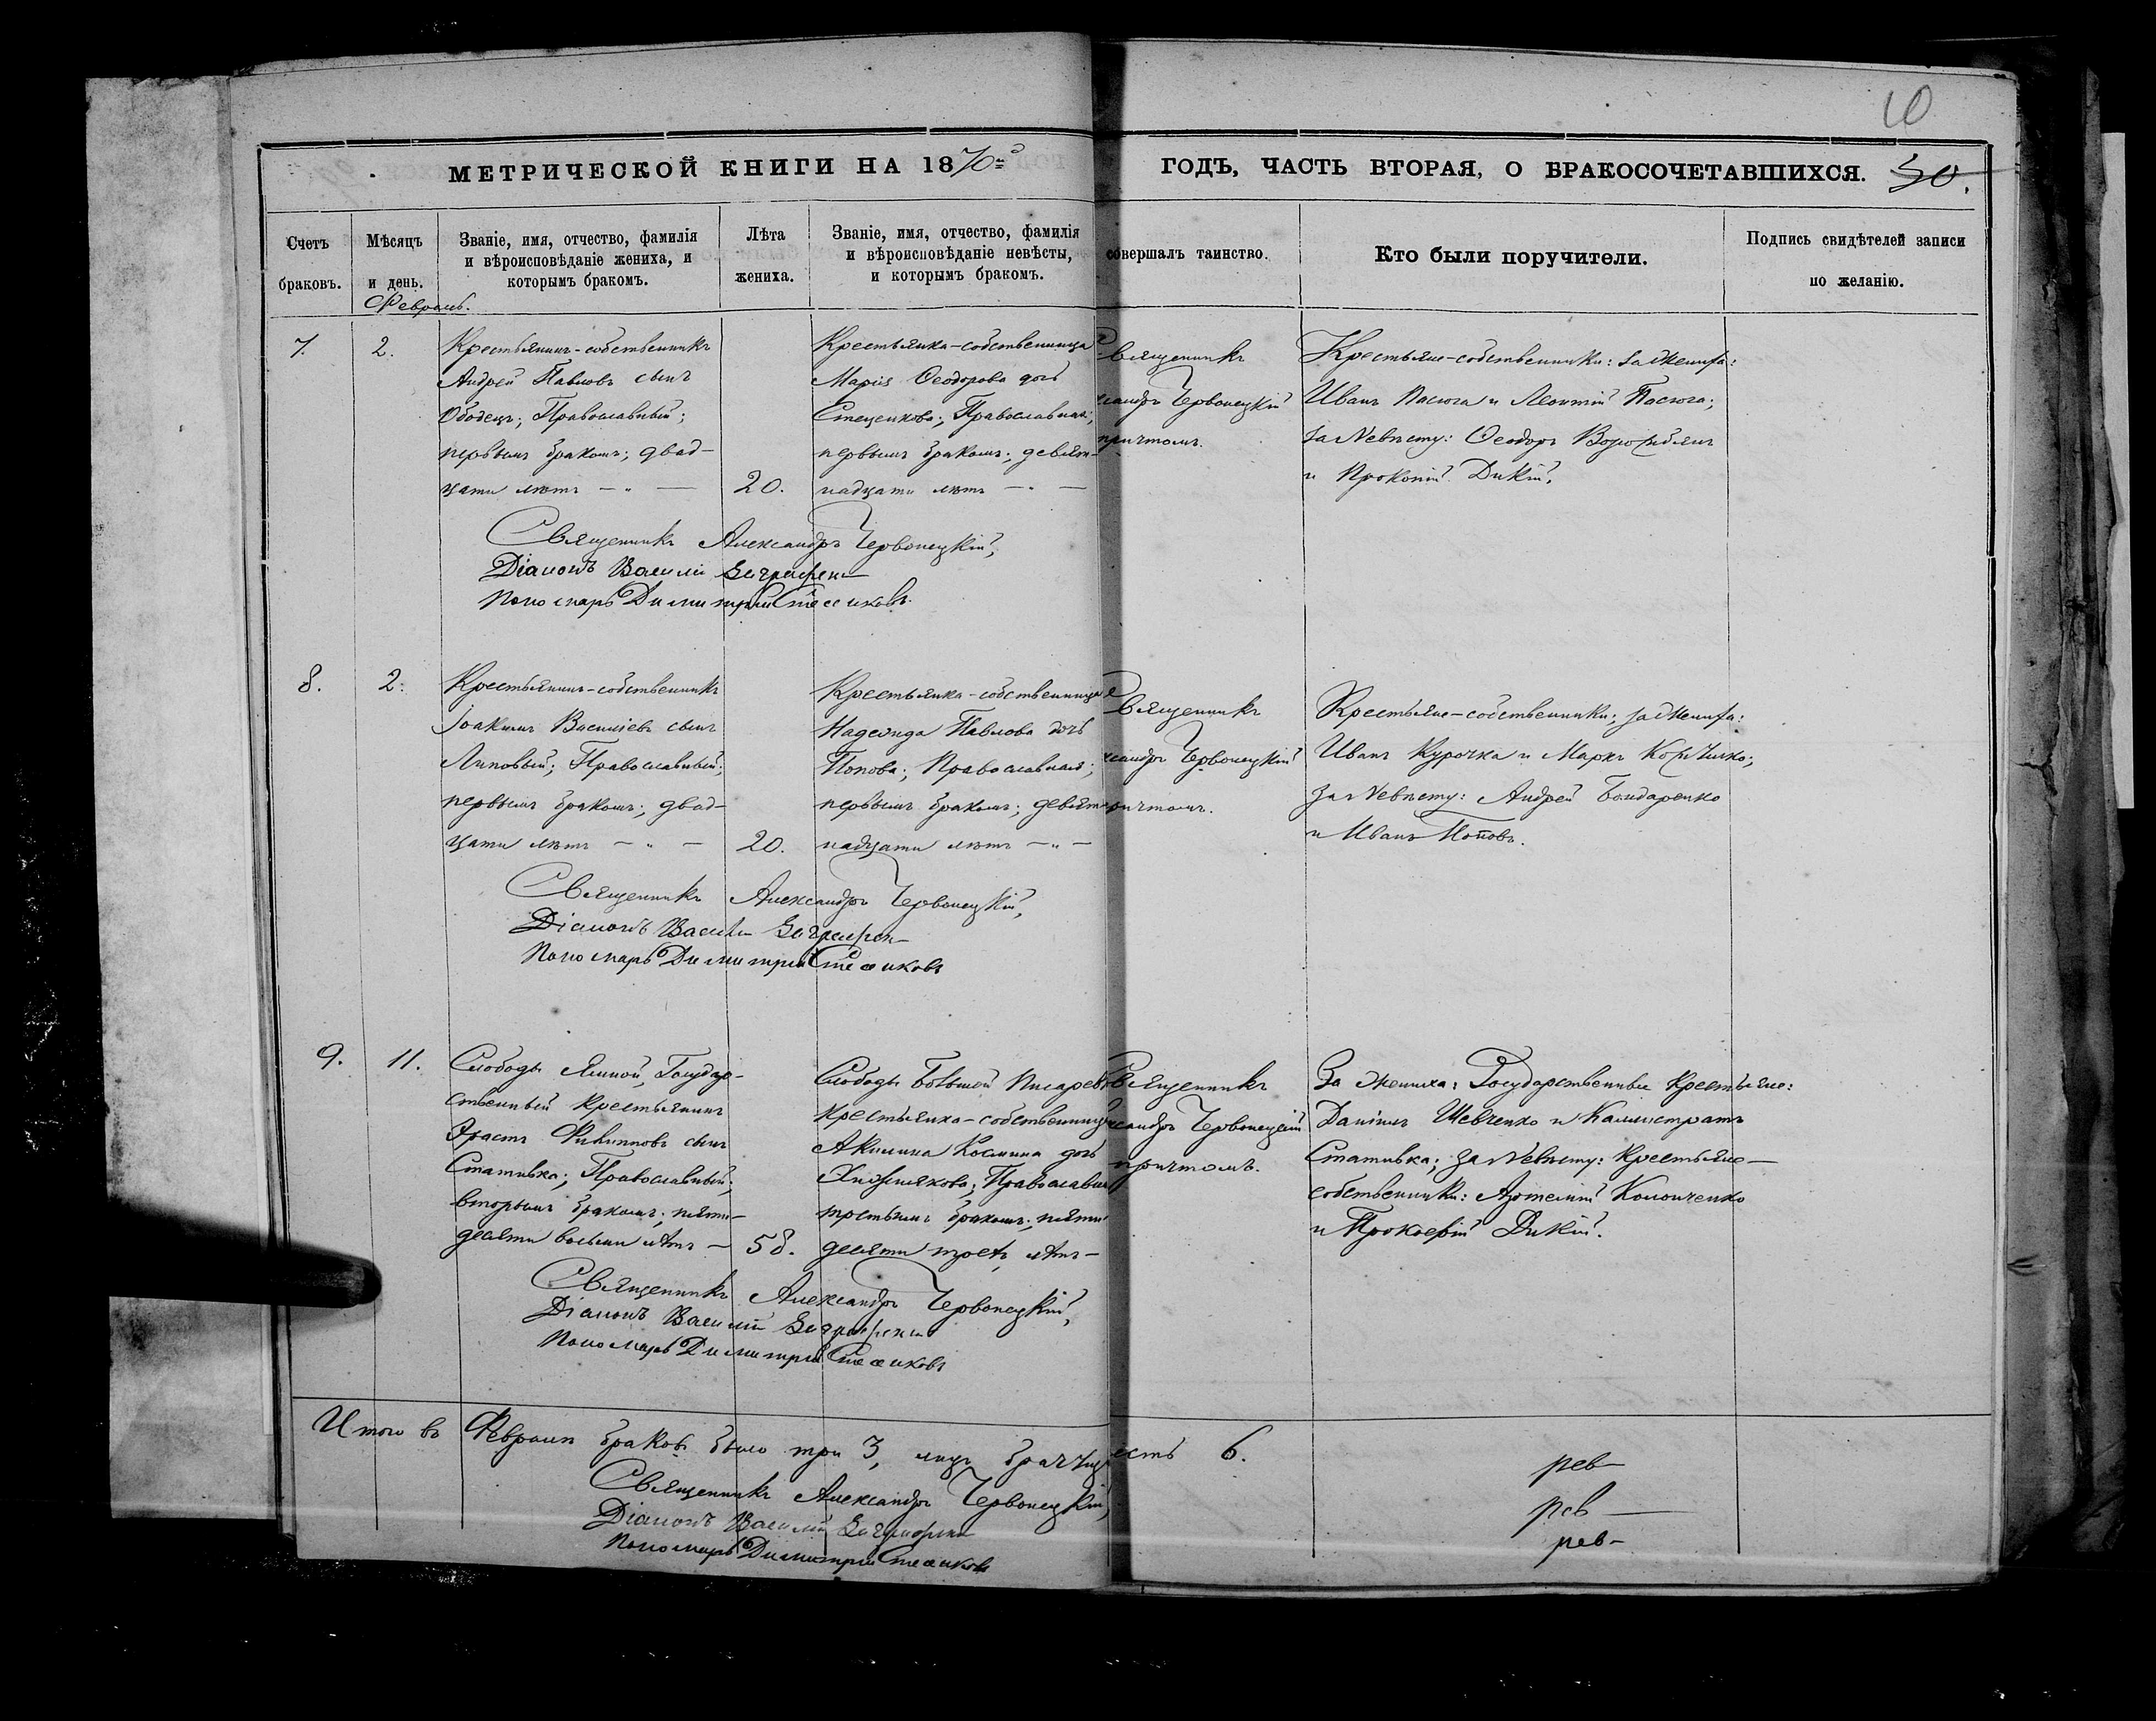 10
МЕТРИЧЕСКОЙ КНИГИ НА 1870й ГОДЪ, ЧАСТЬ ВТОРАЯ, О БРАКОСОЧЕТАВШИХСЯ. 30.
Счетъ браковъ.
Мѣсяцъ и день.
Званіе, имя, отчество, фамилія
и вѣроисповѣданіе жениха, и
которымъ бракомъ.
Лѣта
жениха.
Званіе, имя, отчество, фамилія
и вѣроисповѣданіе невѣсты,
и которымъ бракомъ.
совершалъ таинство.
Кто были поручители.
Подпись свидѣтелей записи
по желанію.
Февраль.
7.
2.
Крестьянинъ-собственникъ
Андрей Павловъ сынъ
Ободецъ; Православный;
первымъ бракомъ; двад-
цати лѣтъ — " —
20.
Крестьянка-собственница
Марія Ѳеодорова дочь
Стеценкова; Православная;
первымъ бракомъ; девят-
надцати лѣтъ — " —
Священникъ
ксандръ Червонецкій
причтомъ.
Крестьяне-собственники: за жениха:
Иванъ Пасюга и Леонтій Пасюга;
за невѣсту: Ѳеодоръ
и Прокопій Дикій.
Священникъ Александръ Червонецкій,
Діаконъ Василій
Пономарь Димитрій
8.
2.
Крестьянинъ-собственникъ
Іоакимъ Василіевъ сынъ
Липовый; Православный;
первымъ бракомъ; двад-
цати лѣтъ — " —
20.
Крестьянка-собственница
Надежда Павлова дочь
Попова; Православная;
первымъ бракомъ; девят-
надцати лѣтъ — " —
Священникъ
ксандръ Червонецкій
ричтомъ.
Крестьяне-собственники; за жениха:
Иванъ Курочка и Маркъ
за невѣсту: Андрей Бондаренко
и Иванъ Поповъ.
Священникъ Александръ Червонецкій,
Діаконъ Василій
Пономарь Димитрій
9.
11.
Слободы Ямной, Государ-
ственный крестьянинъ
Эрастъ Филипповъ сынъ
Стативка; Православный;
вторымъ бракомъ; пяти-
десяти восьми лѣтъ —
58.
Слободы Большой Писарев
крестьянка-собственница
Акилина Космина дочь
Хижнякова; Православная
третьимъ бракомъ; пяти
десяти трехъ лѣтъ —
Священникъ
ксандръ Червонецкій
причтомъ.
За жениха: Государственные крестьяне:
Даніилъ Шевченко и Каллистратъ
Стативка; за невѣсту: крестьяне-
собственники: Артемій
и Прокофій Дикій.
Священникъ Александръ Червонецкій,
Діаконъ Василій
Пономарь Димитрій
Итого въ Февралѣ браковъ было три 3, лицъ есть 6.
Священникъ Александръ Червонецкій,
Діаконъ Василій
Пономарь Димитрій
рев-
рев-
рев-